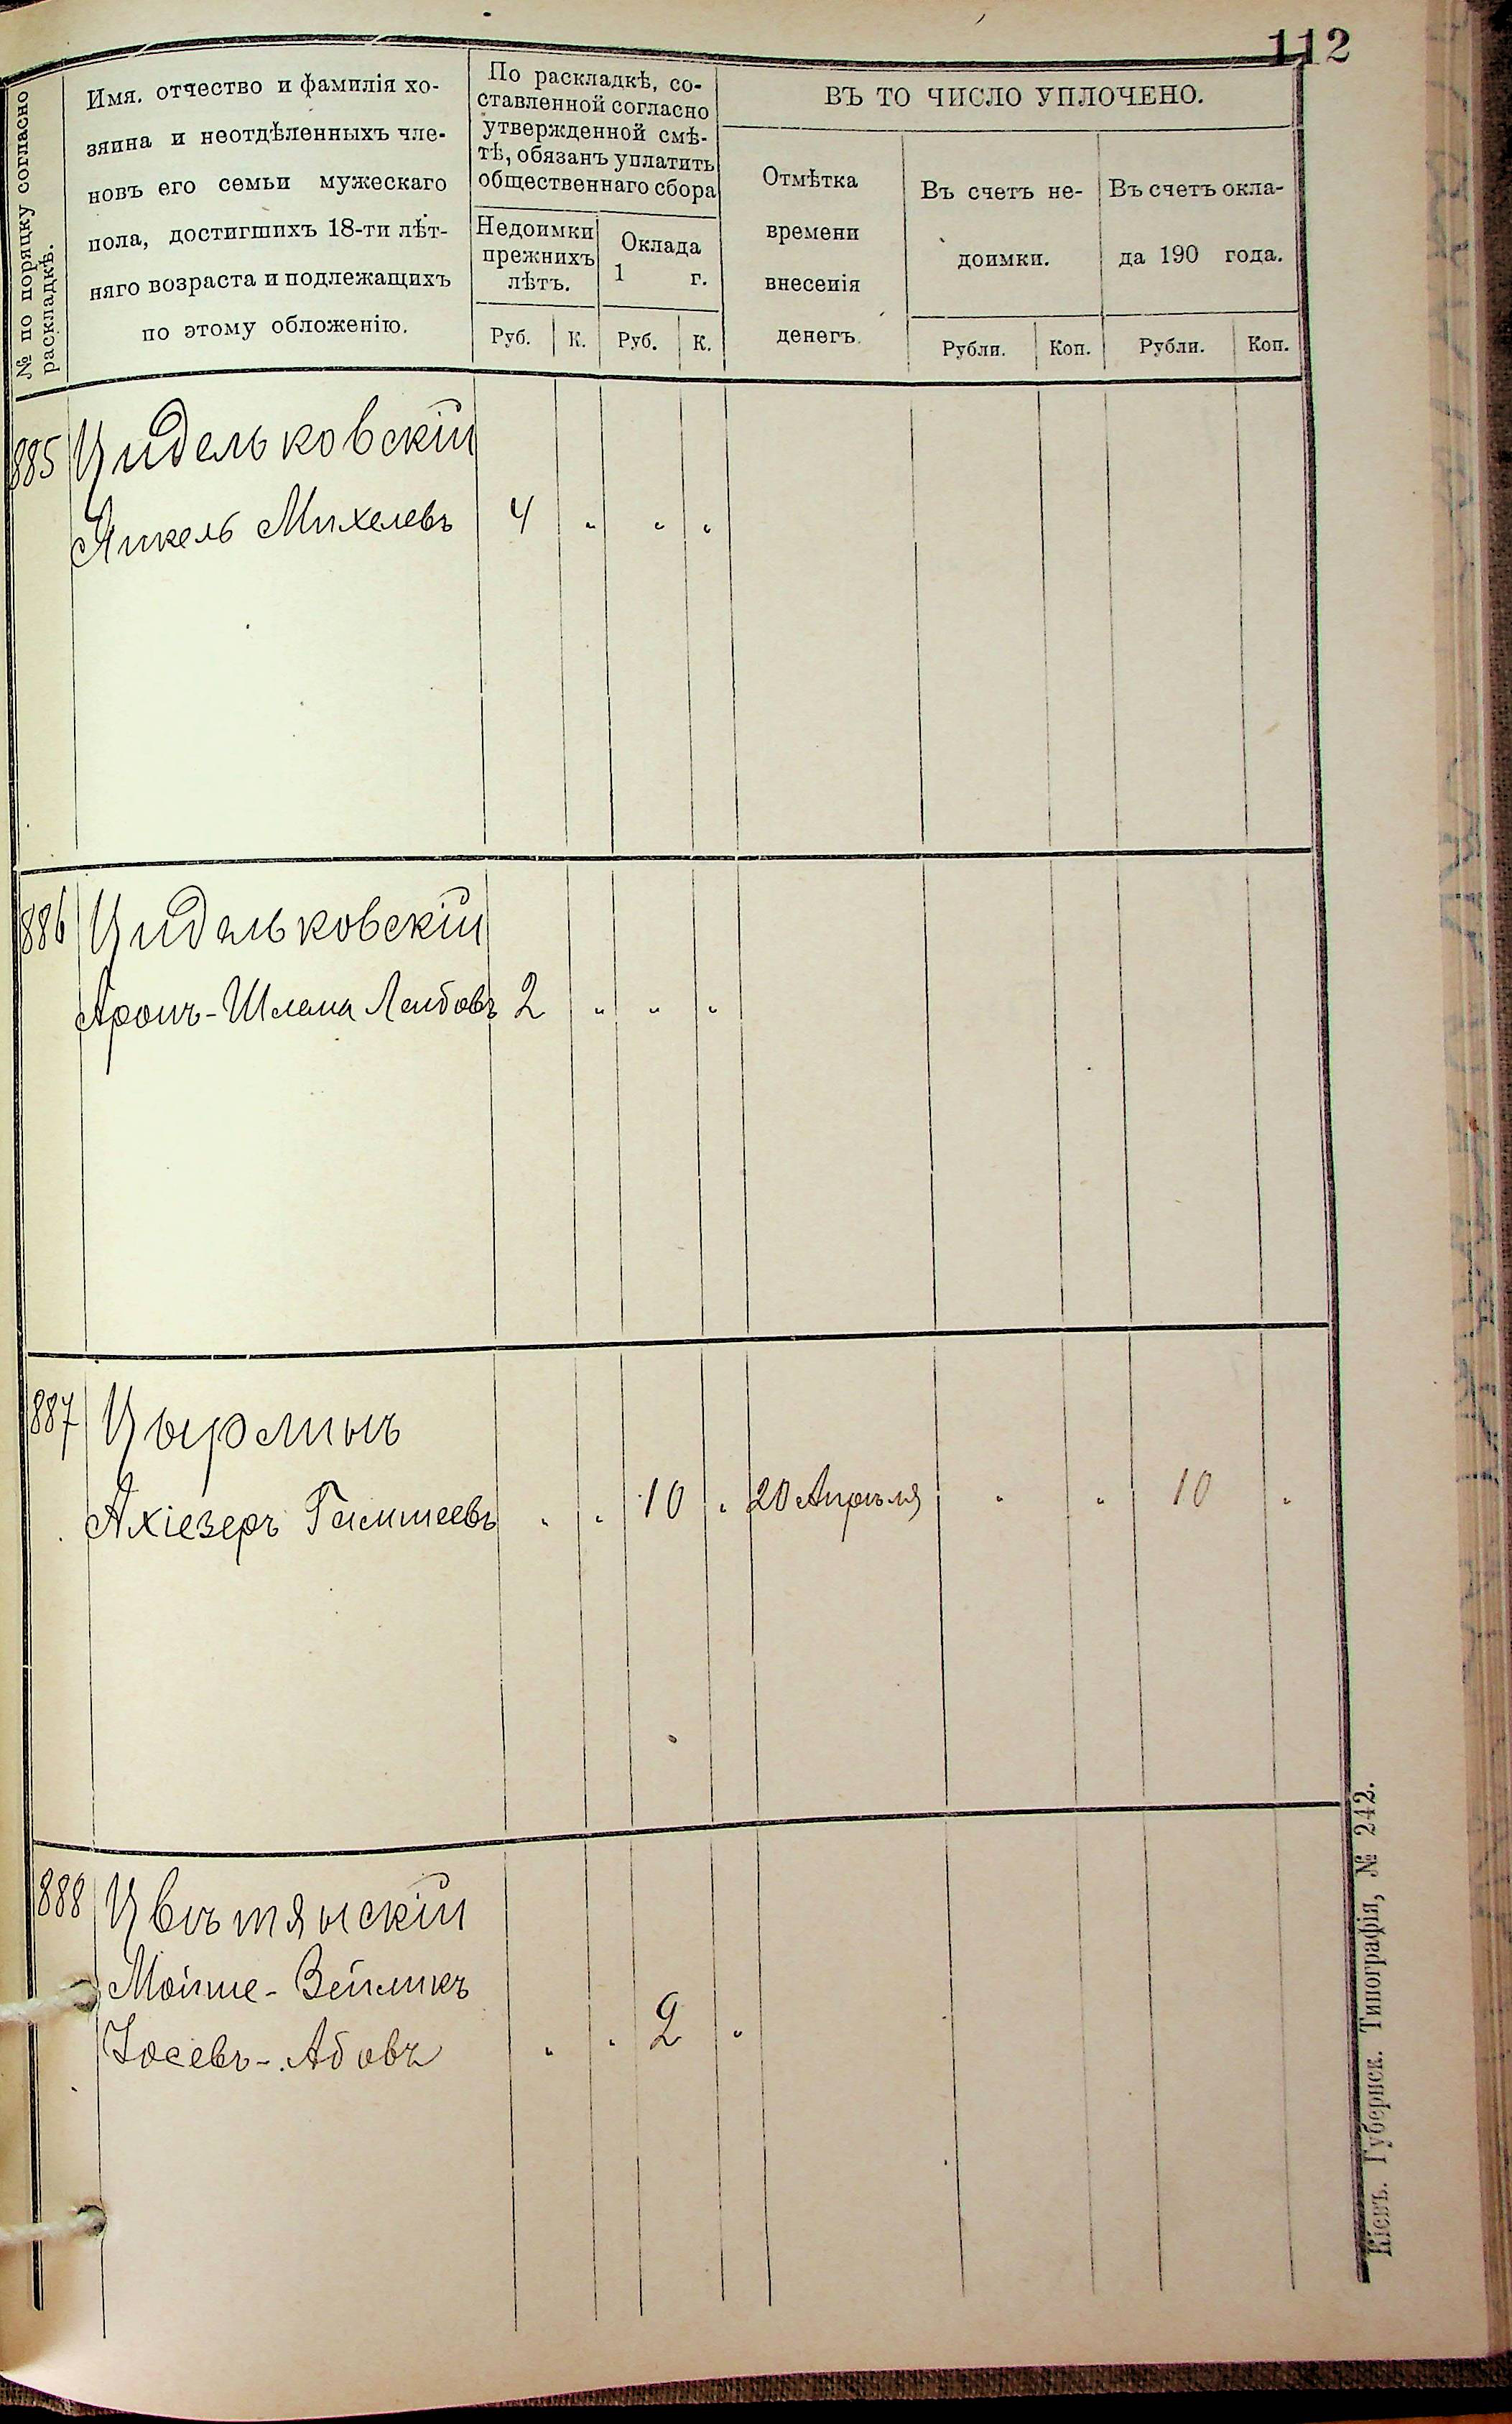 112
№ по порядку согласно
раскладкѣ.
Имя, отчество и фамилія хо-
зяина и неотдѣленныхъ чле-
новъ его семьи мужескаго
пола, достигшихъ 18-ти лѣт-
няго возраста и подлежащихъ
по этому обложенію.
По раскладкѣ, со-
ставленной согласно
утвержденной смѣ-
тѣ, обязанъ уплатить
общественнаго сбора
Недоимки
прежнихъ
лѣтъ.
Оклада
1 г.
Руб. К. Руб. К.
ВЪ ТО ЧИСЛО УПЛОЧЕНО.
Отмѣтка
времени
внесенія
денегъ.
Въ счетъ не-
доимки.
Рубли. Коп.
Въ счетъ окла-
да 190 года.
Рубли. Коп.
885 Цидельковскій
Янкель Михелевъ 4 „ „ „
886 Цидельковскій
Аронъ-Шлема Лейбовъ 2 „ „ „
887 Цырлинъ
Ахіезеръ „ „ 10 „ 20 Апрѣля „ „ 10 „
888 Цвѣтянскій
Мойше-Зейликъ
Іосевъ-Абовъ „ „ 2 „
Кіевъ. Губернск. Типографія, № 242.